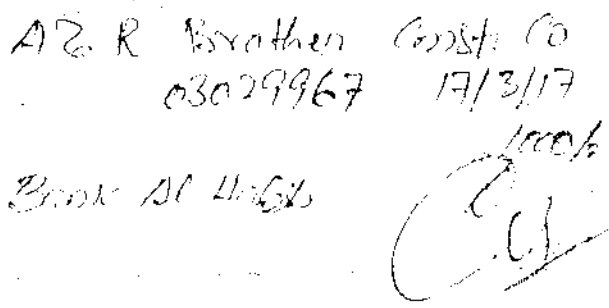 A Z R Brother Const. Co
03029967 17/3/17
1000/-
Bank Al Habib